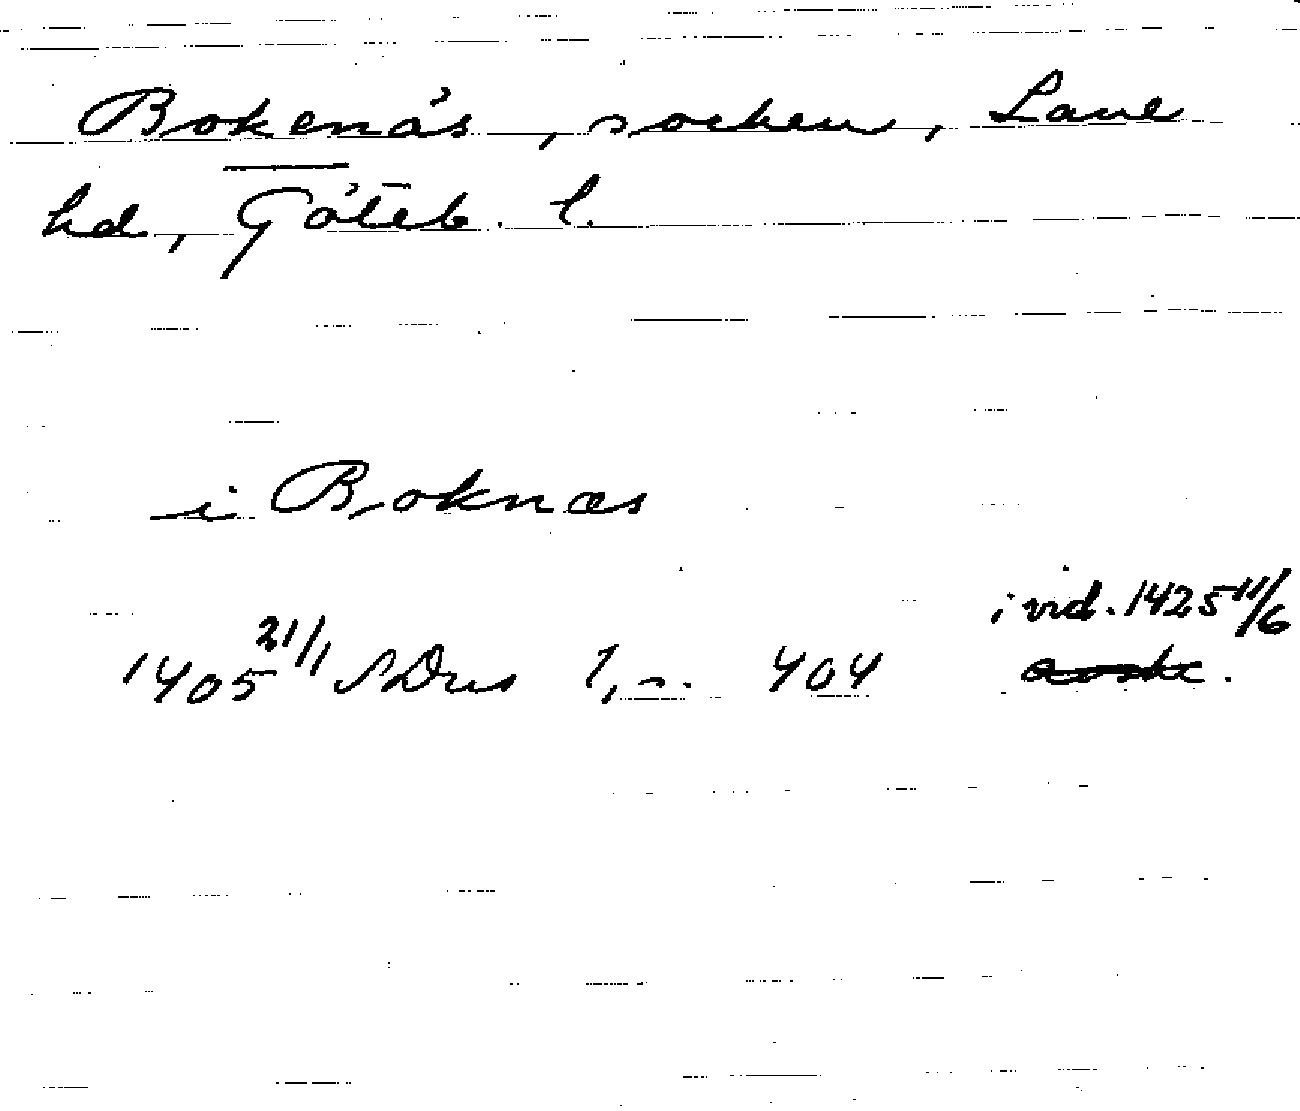 Bokenäs, socken, Lane
hd, Göteb. l.
i Boknæs
i vid. 1425 11/6
1405 21/1 SDns 1, s. 404